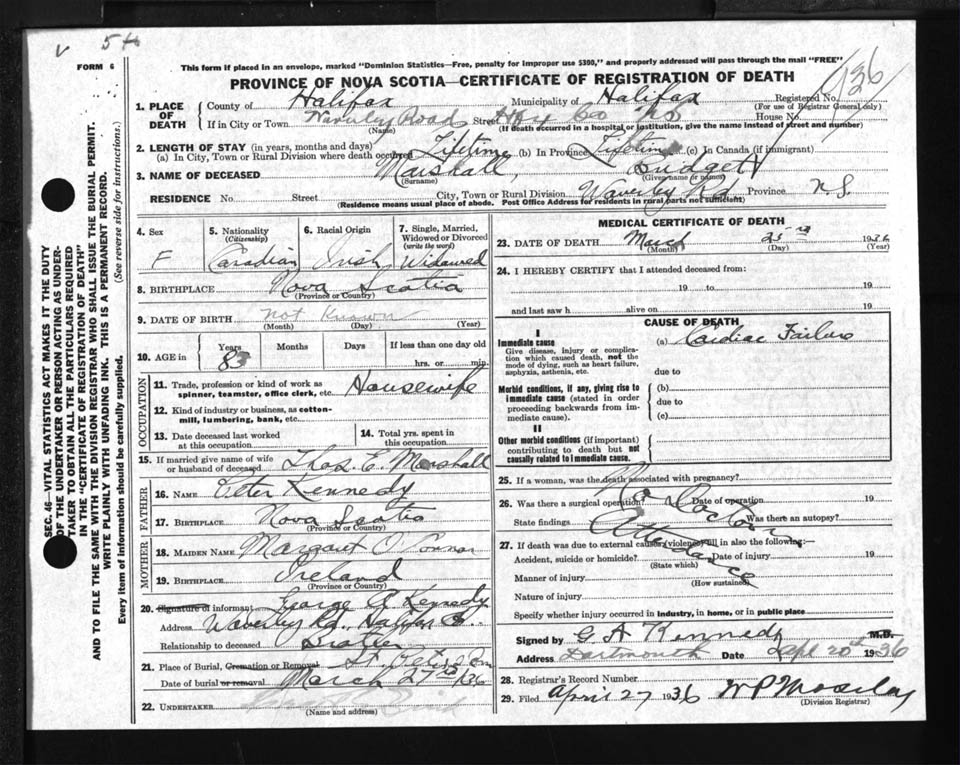 V 5H
FORM 6
This form if placed in an envelope, marked "Dominion Statistics—Free, penalty for improper use $300," and properly addressed will pass through the mail "FREE"
PROVINCE OF NOVA SCOTIA—CERTIFICATE OF REGISTRATION OF DEATH
136
1. PLACE OF DEATH County of Halifax Municipality of Halifax Registered No. (For use of Registrar General only)
If in City or Town Waverley Road Street House No.
(Name) (If death occurred in a hospital or institution, give the name instead of street and number)
2. LENGTH OF STAY (in years, months and days)
(a) In City, Town or Rural Division where death occurred Lifetime (b) In Province Lifetime (c) In Canada (if immigrant)
3. NAME OF DECEASED Marshall, Bridget
(Surname) (Given name or names)
RESIDENCE No. Street City, Town or Rural Division Waverley Rd Province N.S.
(Residence means usual place of abode. Post Office Address for residents in rural parts not sufficient)
SEC. 46—VITAL STATISTICS ACT MAKES IT THE DUTY
OF THE UNDERTAKER OR PERSON ACTING AS UNDER-
TAKER TO OBTAIN ALL THE PARTICULARS REQUIRED
IN THE "CERTIFICATE OF REGISTRATION OF DEATH"
AND TO FILE THE SAME WITH THE DIVISION REGISTRAR WHO SHALL ISSUE THE BURIAL PERMIT.
WRITE PLAINLY WITH UNFADING INK. THIS IS A PERMANENT RECORD.
Every item of information should be carefully supplied. (See reverse side for instructions.)
4. Sex 5. Nationality (Citizenship) 6. Racial Origin 7. Single, Married, Widowed or Divorced (write the word)
F Canadian Irish Widowed
8. BIRTHPLACE Nova Scotia
(Province or Country)
9. DATE OF BIRTH not known
(Month) (Day) (Year)
10. AGE in Years Months Days If less than one day old
83 hrs. or min.
OCCUPATION
11. Trade, profession or kind of work as spinner, teamster, office clerk, etc. Housewife
12. Kind of industry or business, as cotton-mill, lumbering, bank, etc.
13. Date deceased last worked at this occupation 14. Total yrs. spent in this occupation
15. If married give name of wife or husband of deceased Thos. E. Marshall
FATHER
16. NAME Peter Kennedy
17. BIRTHPLACE Nova Scotia
(Province or Country)
MOTHER
18. MAIDEN NAME Margaret O'Connor
19. BIRTHPLACE Ireland
(Province or Country)
20. Signature of informant George A Kennedy
Address Waverley Rd., Halifax Co.
Relationship to deceased Brother
21. Place of Burial, Cremation or Removal St. Peter's
Date of burial or removal March 27 1936
22. UNDERTAKER
(Name and address)
MEDICAL CERTIFICATE OF DEATH
23. DATE OF DEATH March 25 1936
(Month) (Day) (Year)
24. I HEREBY CERTIFY that I attended deceased from:
19 to 19
and last saw h alive on 19
CAUSE OF DEATH
I
Immediate cause (a) Cardiac Failure
Give disease, injury or complication which caused death, not the mode of dying, such as heart failure, asphyxia, asthenia, etc.
due to
Morbid conditions, if any, giving rise to immediate cause (stated in order proceeding backwards from immediate cause).
(b)
due to
(c)
II
Other morbid conditions (if important) contributing to death but not causally related to immediate cause.
25. If a woman, was the death associated with pregnancy?
No Doctor
Attendance
26. Was there a surgical operation? Date of operation 19
State findings Was there an autopsy?
27. If death was due to external causes (violence) fill in also the following:—
Accident, suicide or homicide? Date of injury 19
(State which)
Manner of injury
(How sustained)
Nature of injury
Specify whether injury occurred in industry, in home, or in public place
Signed by G A Kennedy M.D.
Address Dartmouth Date Apl 20 1936
28. Registrar's Record Number
29. Filed April 27 1936
(Division Registrar)